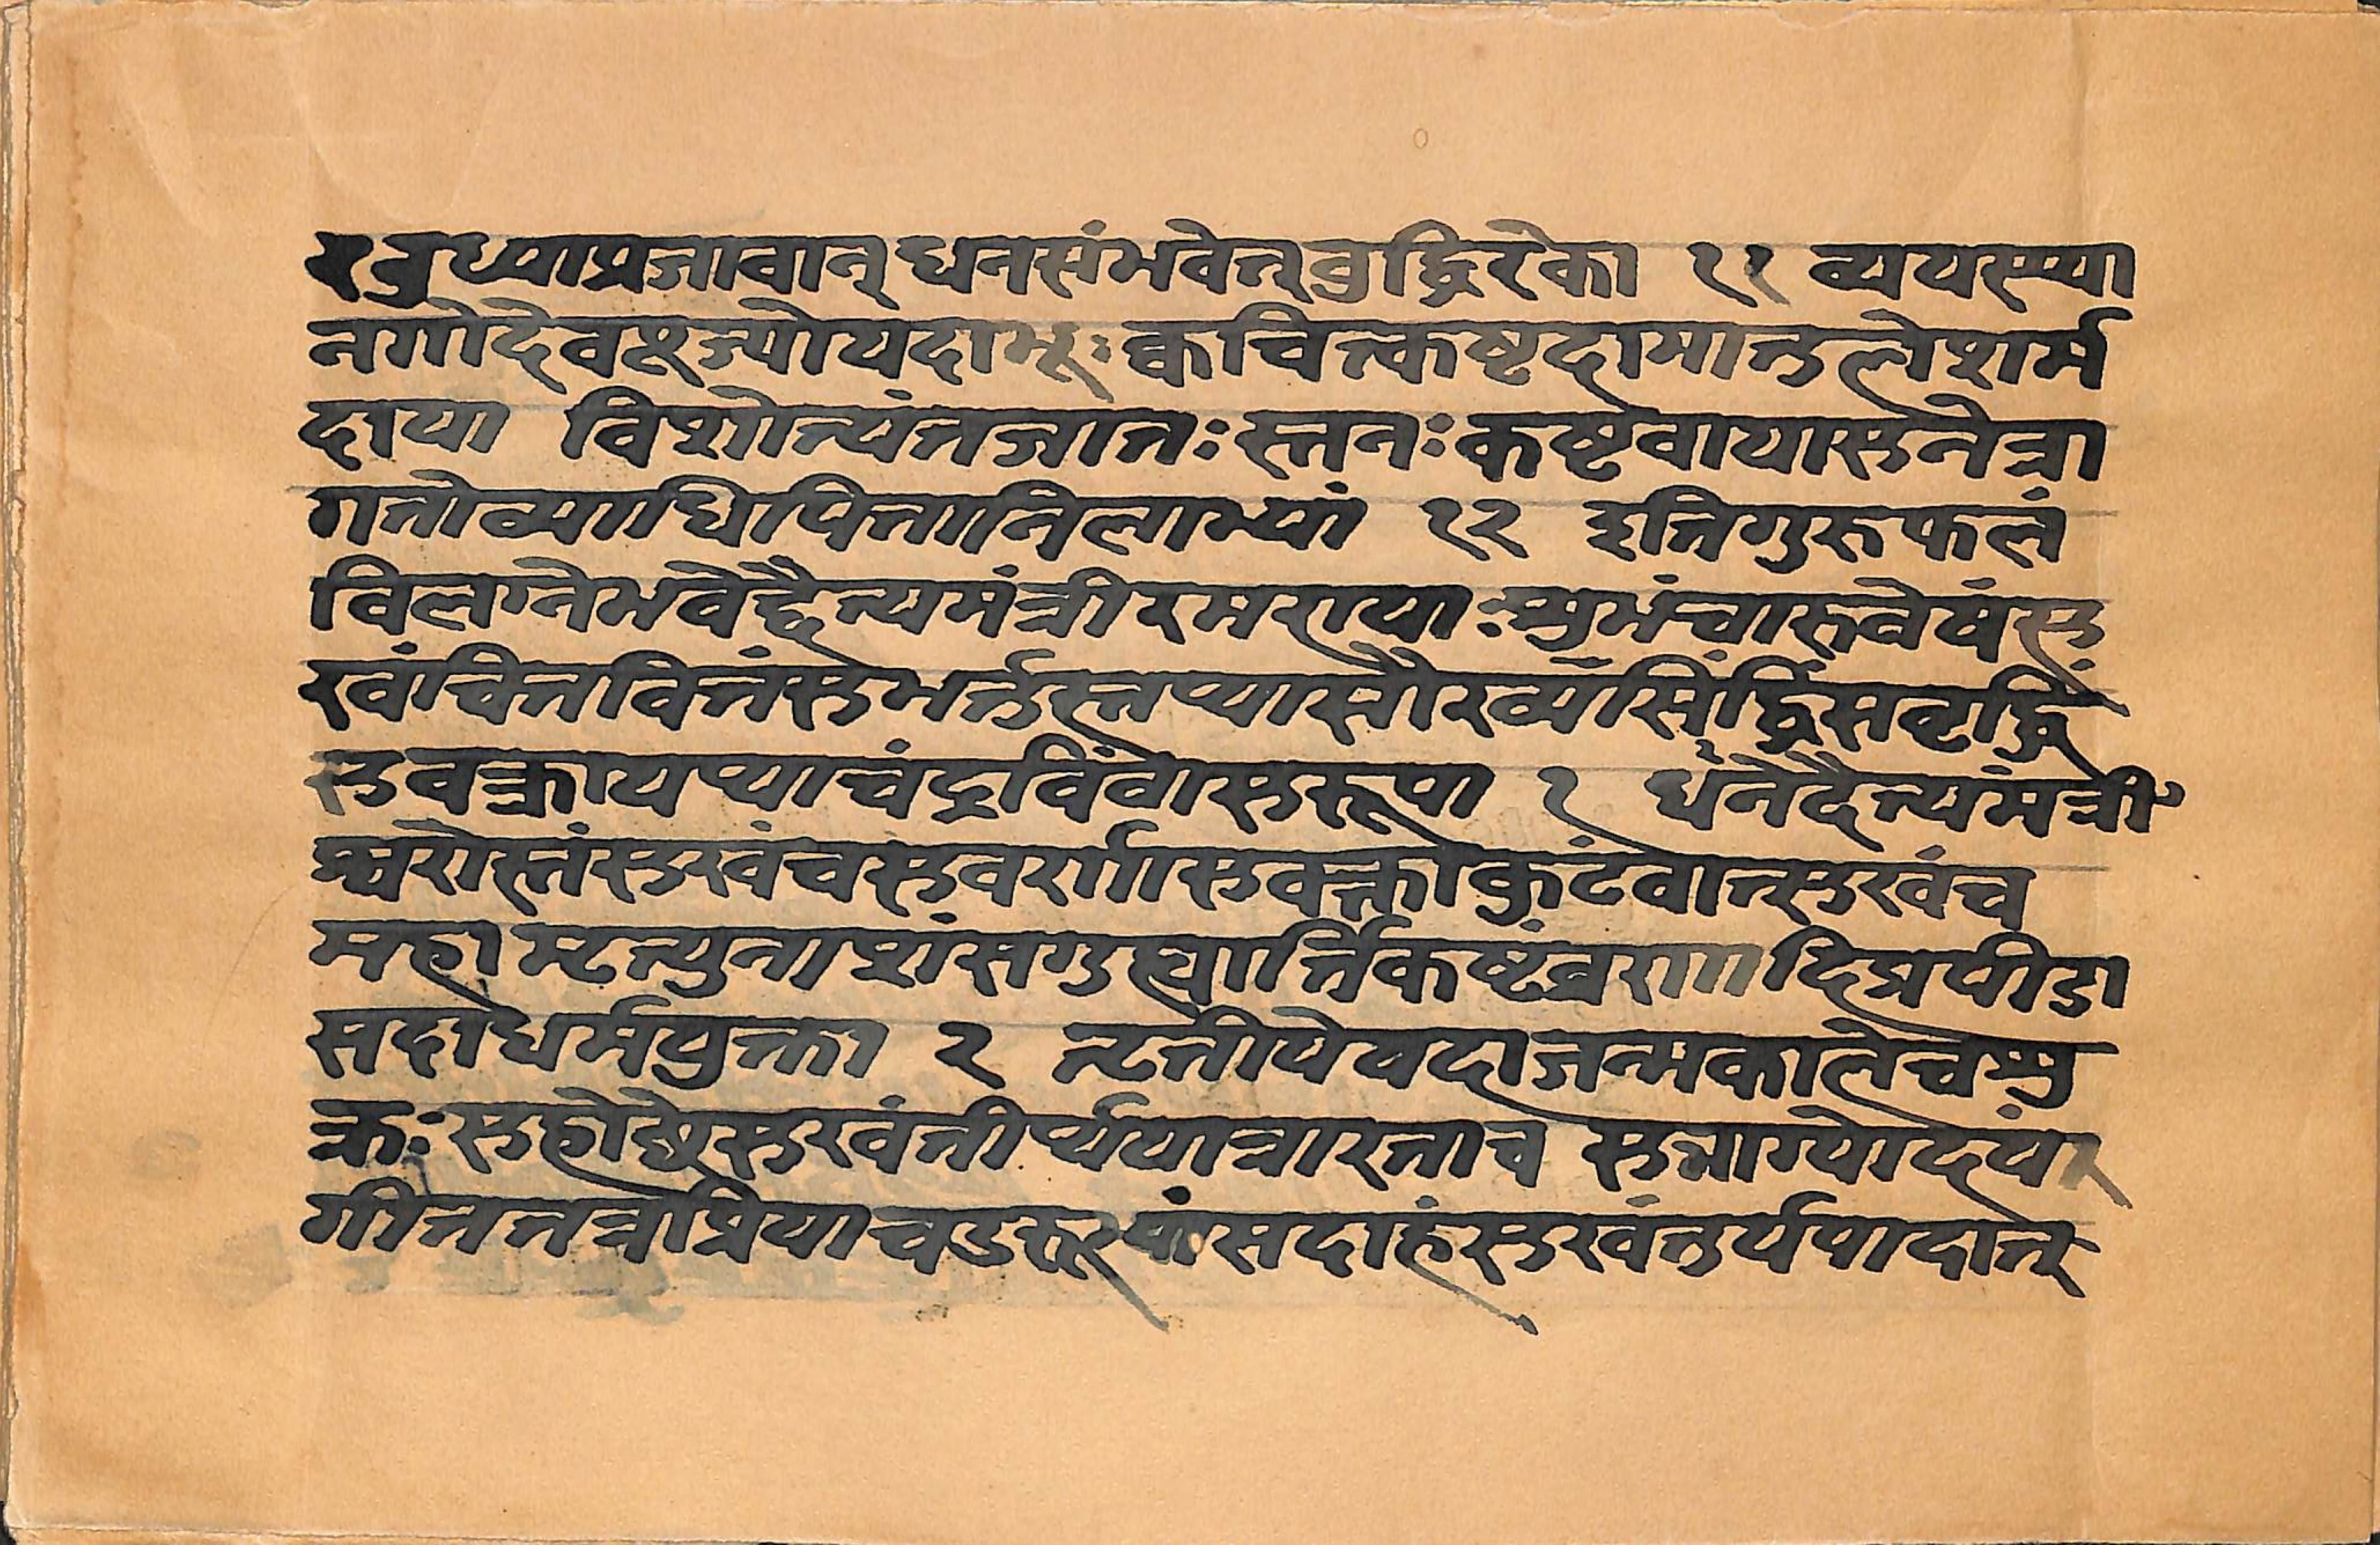 रबुध्याप्रजावान् धनसंभवेत् बुद्धिरेका ११ व्ययस्था
नगोदेवपूज्योयदाभूः क्वचित्कष्टदामातुलेशर्म
दाया विशोत्यंतजातः स्तनः कष्टवायासुनेत्रा
गतोव्याधिपित्तानिलाभ्यां १२ इतिगुरुफलं
विलग्नेभवेद्दैत्यमंत्रीरमराया ःशुभंचारुवेषंसु
खंचित्तवित्तंसुभर्तुस्तथासौख्यसिद्धिंसवृद्धिं
सुवक्त्रायथाचंद्रविंवासुरूपा १ धनेदैत्यमंत्री
श्वरोस्तंसुखंचसुवर्णासुवक्त्राकुटंवात्सुखंच
महामृत्युनाशंसगुह्यार्त्तिकष्टंव्रणादिप्रपीडा
सदाधर्मयुक्ता २ तृतीयेयदाजन्मकालेचशु
क्रः सुहोद्येसुखंतीर्थयात्रारताच सुभाग्योदयं
गीततत्रप्रियाच सदाहंसुखंतुर्यपादात्